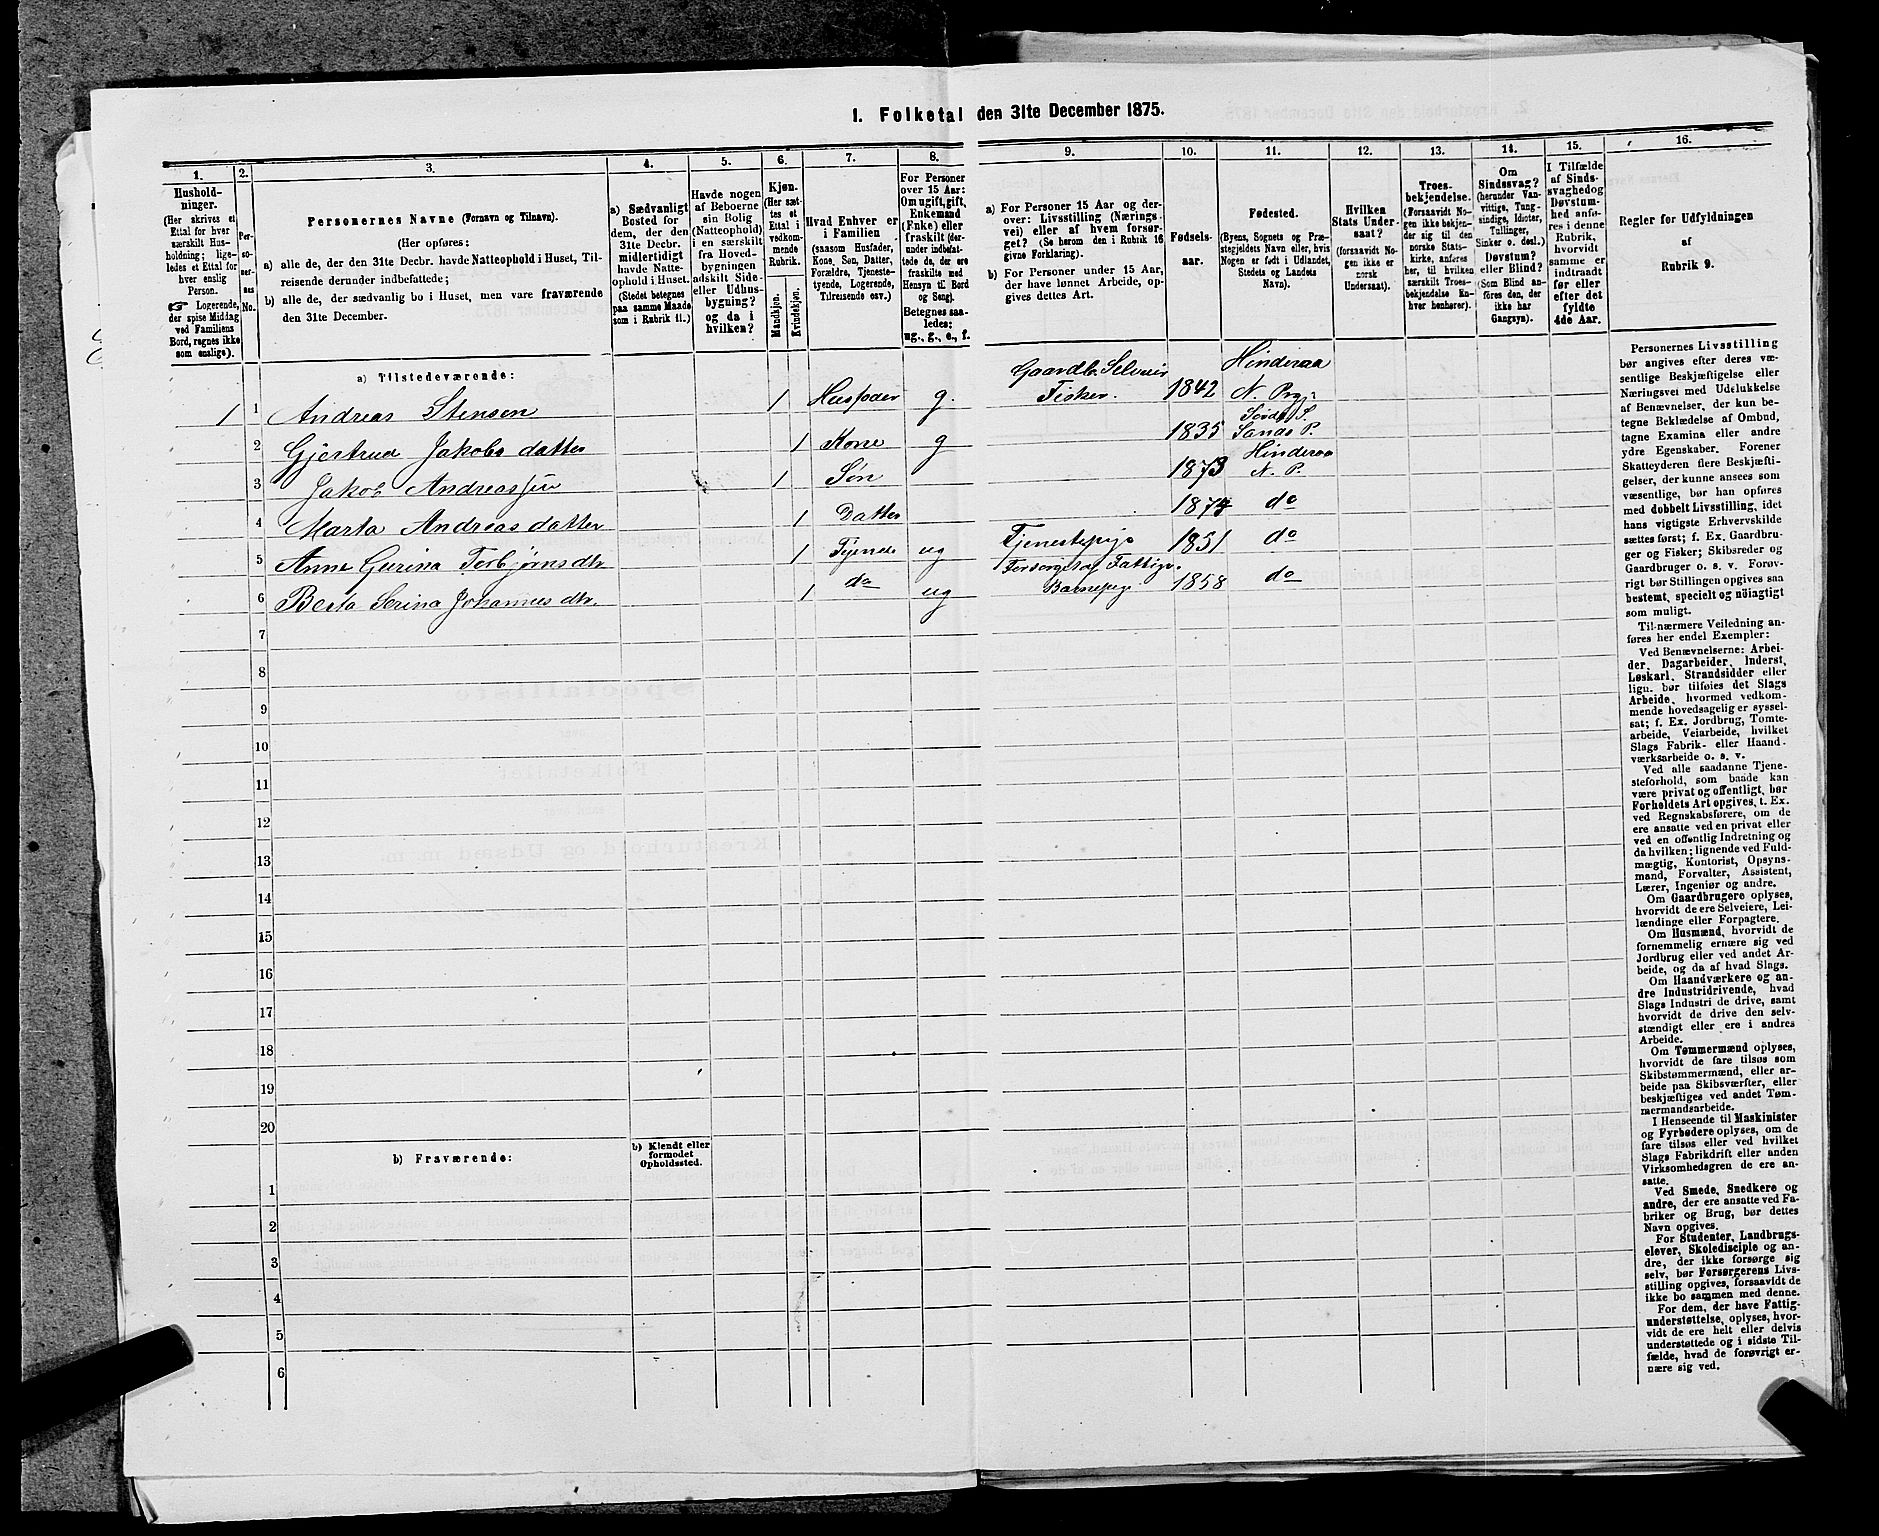 1. Folketal den 31te December 1875.
1.
Hushold-
ninger.
(Her skrives et
Ettal for hver
særskilt Hus-
holdning; lige-
ledes et Ettal for
hver enslig
Person.
☞ Logerende,
der spise Middag
ved Familiens
Bord, regnes ikke
som enslige).
2.
Per-
so-
ner-
nes
No.
3.
Personernes Navne (Fornavn og Tilnavn).
(Her opføres:
a) alle de, der den 31te Decbr. havde Natteophold i Huset, Til-
reisende derunder indbefattede;
b) alle de, der sædvanlig bo i Huset, men vare fraværende
den 31te December.
4.
a) Sædvanligt
Bosted for
dem, der den
31te Decbr.
midlertidigt
havde Natte-
ophold i Huset.
(Stedet betegnes
paa samme Maade
som i Rubrik 11.)
5.
Havde nogen
af Beboerne
sin Bolig
(Natteophold)
i en særskilt
fra Hoved-
bygningen
adskilt Side-
eller Udhus-
bygning?
og da i
hvilken?
6.
Kjøn.
(Her sæt-
tes et
Ettal i
vedkom-
mende
Rubrik.
Mandkjøn.
Kvindekjøn.
7.
Hvad Enhver er
i Familien
(saasom Husfader,
Kone, Søn, Datter,
Forældre, Tjeneste-
tyende, Logerende,
Tilreisende osv.)
8.
For Personer
over 15 Aar:
Om ugift, gift,
Enkemand
(Enke) eller
fraskilt (der-
under indbefat-
tede de, der ere
fraskilte med
Hensyn til Bord
og Seng).
Betegnes saa-
ledes:
ug., g., e., f.
9.
a) For Personer 15 Aar og der-
over: Livsstilling (Nærings-
vei) eller af hvem forsør-
get? (Se herom den i Rubrik 16
givne Forklaring).
b) For Personer under 15 Aar,
der have lønnet Arbeide, op-
gives dettes Art.
10.
Fødsels-
aar.
11.
Fødested.
(Byens, Sognets og Præ-
stegjeldets Navn eller, hvis
Nogen er født i Udlandet,
Stedets og Landets
Navn).
12.
Hvilken
Stats Under-
saat?
(forsaavidt No-
gen ikke er
norsk
Undersaat).
13.
Troes-
bekjendelse.
(Forsaavidt No-
gen ikke bekjen-
der sig til den
norske Stats-
kirke, anføres
her, til hvilken
særskilt Troes-
bekjendelse En-
hver henhører).
14.
Om
Sindssvag?
(herunder Van-
vittige, Tung-
sindige, Idioter,
Tullinger,
Sinker o. desl.)
Døvstum?
eller Blind?
(Som Blind an-
føres den, der
ikke har
Gangsyn).
15.
I Tilfælde
af Sinds-
svaghed og
Døvstum-
hed anfø-
res i denne
Rubrik,
hvorvidt
samme er
indtraadt
før eller
efter det
fyldte
4de Aar.
16.
Regler for Udfyldningen
af
Rubrik 9.
a) Tilstedeværende:
1 1 Andreas Stensen 1 Husfader g. Gaardb. Selveier Fisker. 1842 Hinderaa N. Prgj.
2 Gjertrud Jakobsdatter 1 Kone g 1835 S. Sands P.
3 Jakob Andreassen 1 Søn 1873 Hinderaa N. P.
4 Marta Andreasdatter 1 Datter 1874 do
5 Anne Gurina Torbjørnsdtr 1 Tjende ug Tjenestepige 1851 do
6 Berta Serina Johannesdtr. 1 do ug Forsørget af Fattigv. Barnepig. 1858 do
7
8
9
10
11
12
13
14
15
16
17
18
19
20
b) Fraværende:
b) Kjendt eller
formodet
Opholdssted.
1
2
3
4
5
6
Personernes Livsstilling
bør angives efter deres væ-
sentlige Beskjæftigelse eller
Næringsvei med Udelukkelse
af Benævnelser, der kun be-
tegne Beklædelse af Ombud,
tagne Examina eller andre
ydre Egenskaber. Forener
Skatteyderen flere Beskjæfti-
gelser, der kunne ansees som
væsentlige, bør han opføres
med dobbelt Livsstilling, idet
hans vigtigste Erhvervskilde
sættes først; f. Ex. Gaardbru-
ger og Fisker; Skibsreder og
Gaardbruger o. s. v. Forøv-
rigt bør Stillingen opgives saa
bestemt, specielt og nöiagtigt
som muligt.
Til nærmere Veiledning an-
føres her endel Exempler:
Ved Benævnelserne: Arbei-
der, Dagarbeider, Inderst,
Løskarl, Strandsidder eller
lign. bør tilføies det Slags
Arbeide, hvormed vedkom-
mende hovedsagelig er syssel-
sat; f. Ex. Jordbrug, Tomte-
arbeide, Veiarbeide, hvilket
Slags Fabrik- eller Haand-
værksarbeide o. s. v.
Ved alle saadanne Tjene-
steforhold, som baade kan
være privat og offentligt, bør
Forholdets Art opgives, t. Ex.
ved Regnskabsførere, om de
ere ansatte ved en privat eller
ved en offentlig Indretning og
da hvilken; lignende ved Fuld-
mægtig, Kontorist, Opsyns-
mand, Forvalter, Assistent,
Lærer, Ingeniør og andre.
Om Gaardbrugere oplyses,
hvorvidt de ere Selveiere, Lei-
lændinge eller Forpagtere.
Om Husmænd, hvorvidt de
fornemmelig ernære sig ved
Jordbrug eller ved andet Ar-
beide, og da af hvad Slags.
Om Haandværkere og an-
dre Industridrivende, hvad
Slags Industri de drive, samt
hvorvidt de drive den selv-
stændigt eller ere i andres
Arbeide.
Om Tømmermænd oplyses,
hvorvidt de fare tilsøs som
Skibstømmermænd, eller ar-
beide paa Skibsværfter, eller
beskjæftiges ved andet Tøm-
mermandsarbeide.
I Henseende til Maskinister
og Fyrbødere oplyses, om de
fare tilsøs eller ved hvilket
Slags Fabrikdrift eller anden
Virksomhedsgren de ere an-
satte.
Ved Smede, Snedkere og
andre, der ere ansatte ved Fa-
briker og Brug, bør dettes
Navn opgives.
For Studenter, Landbrugs-
elever, Skoledisciple og an-
dre, der ikke forsørge sig
selv, bør Forsørgerens Livs-
stilling opgives, forsaavidt de
ikke bo sammen med denne.
For dem, der have Fattig-
understøttelse, oplyses, hvor-
vidt de ere helt eller delvis
understøttede og i sidste Til-
fælde, hvad de forøvrigt er-
nære sig ved.